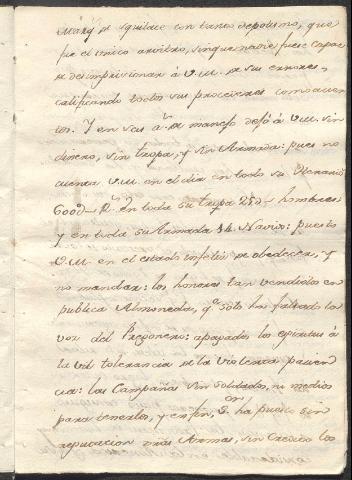 Marq.s de Squilace con tanto depotismo, que
fue el unico arvitro, sin que nadie fuese capaz
de desimpresionar á V.M. de sus errores,
calificando todos sus procederes como
tos. Y en seis a.s de manejo dejó á V.M. sin
dinero, sin tropa, y sin Armada: pues no
cuenta V.M. en el dia en todo su Herario
600@ R.s en toda su tropa 250 hombres
y en toda su Armada 14 Navios: puesto
V.M. en el estado infeliz de obedecer, y
no mandar: los honores tan vendidos en
publica Almoneda, q.e solo ha faltado la
voz del Pregonero: apagados los espiritus á
la vil tolerancia de la violenta pacien
cia: las Campañas sin soldados, ni medios
para tenerlos, y en fin, ha puesto sin
reputacion Armas, sin credito los